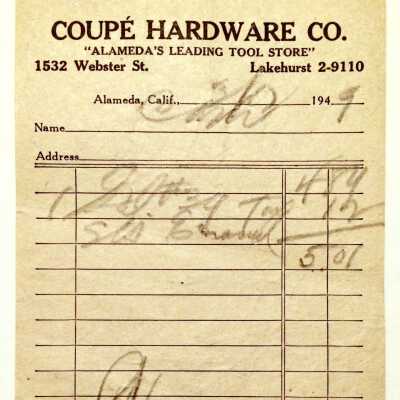 COUPÉ HARDWARE CO.
"ALAMEDA'S LEADING TOOL STORE"
1532 Webster St. Lakehurst 2-9110
Alameda, Calif., 1949
Name
Address
4 84
Tax 17
Enamel
5.01